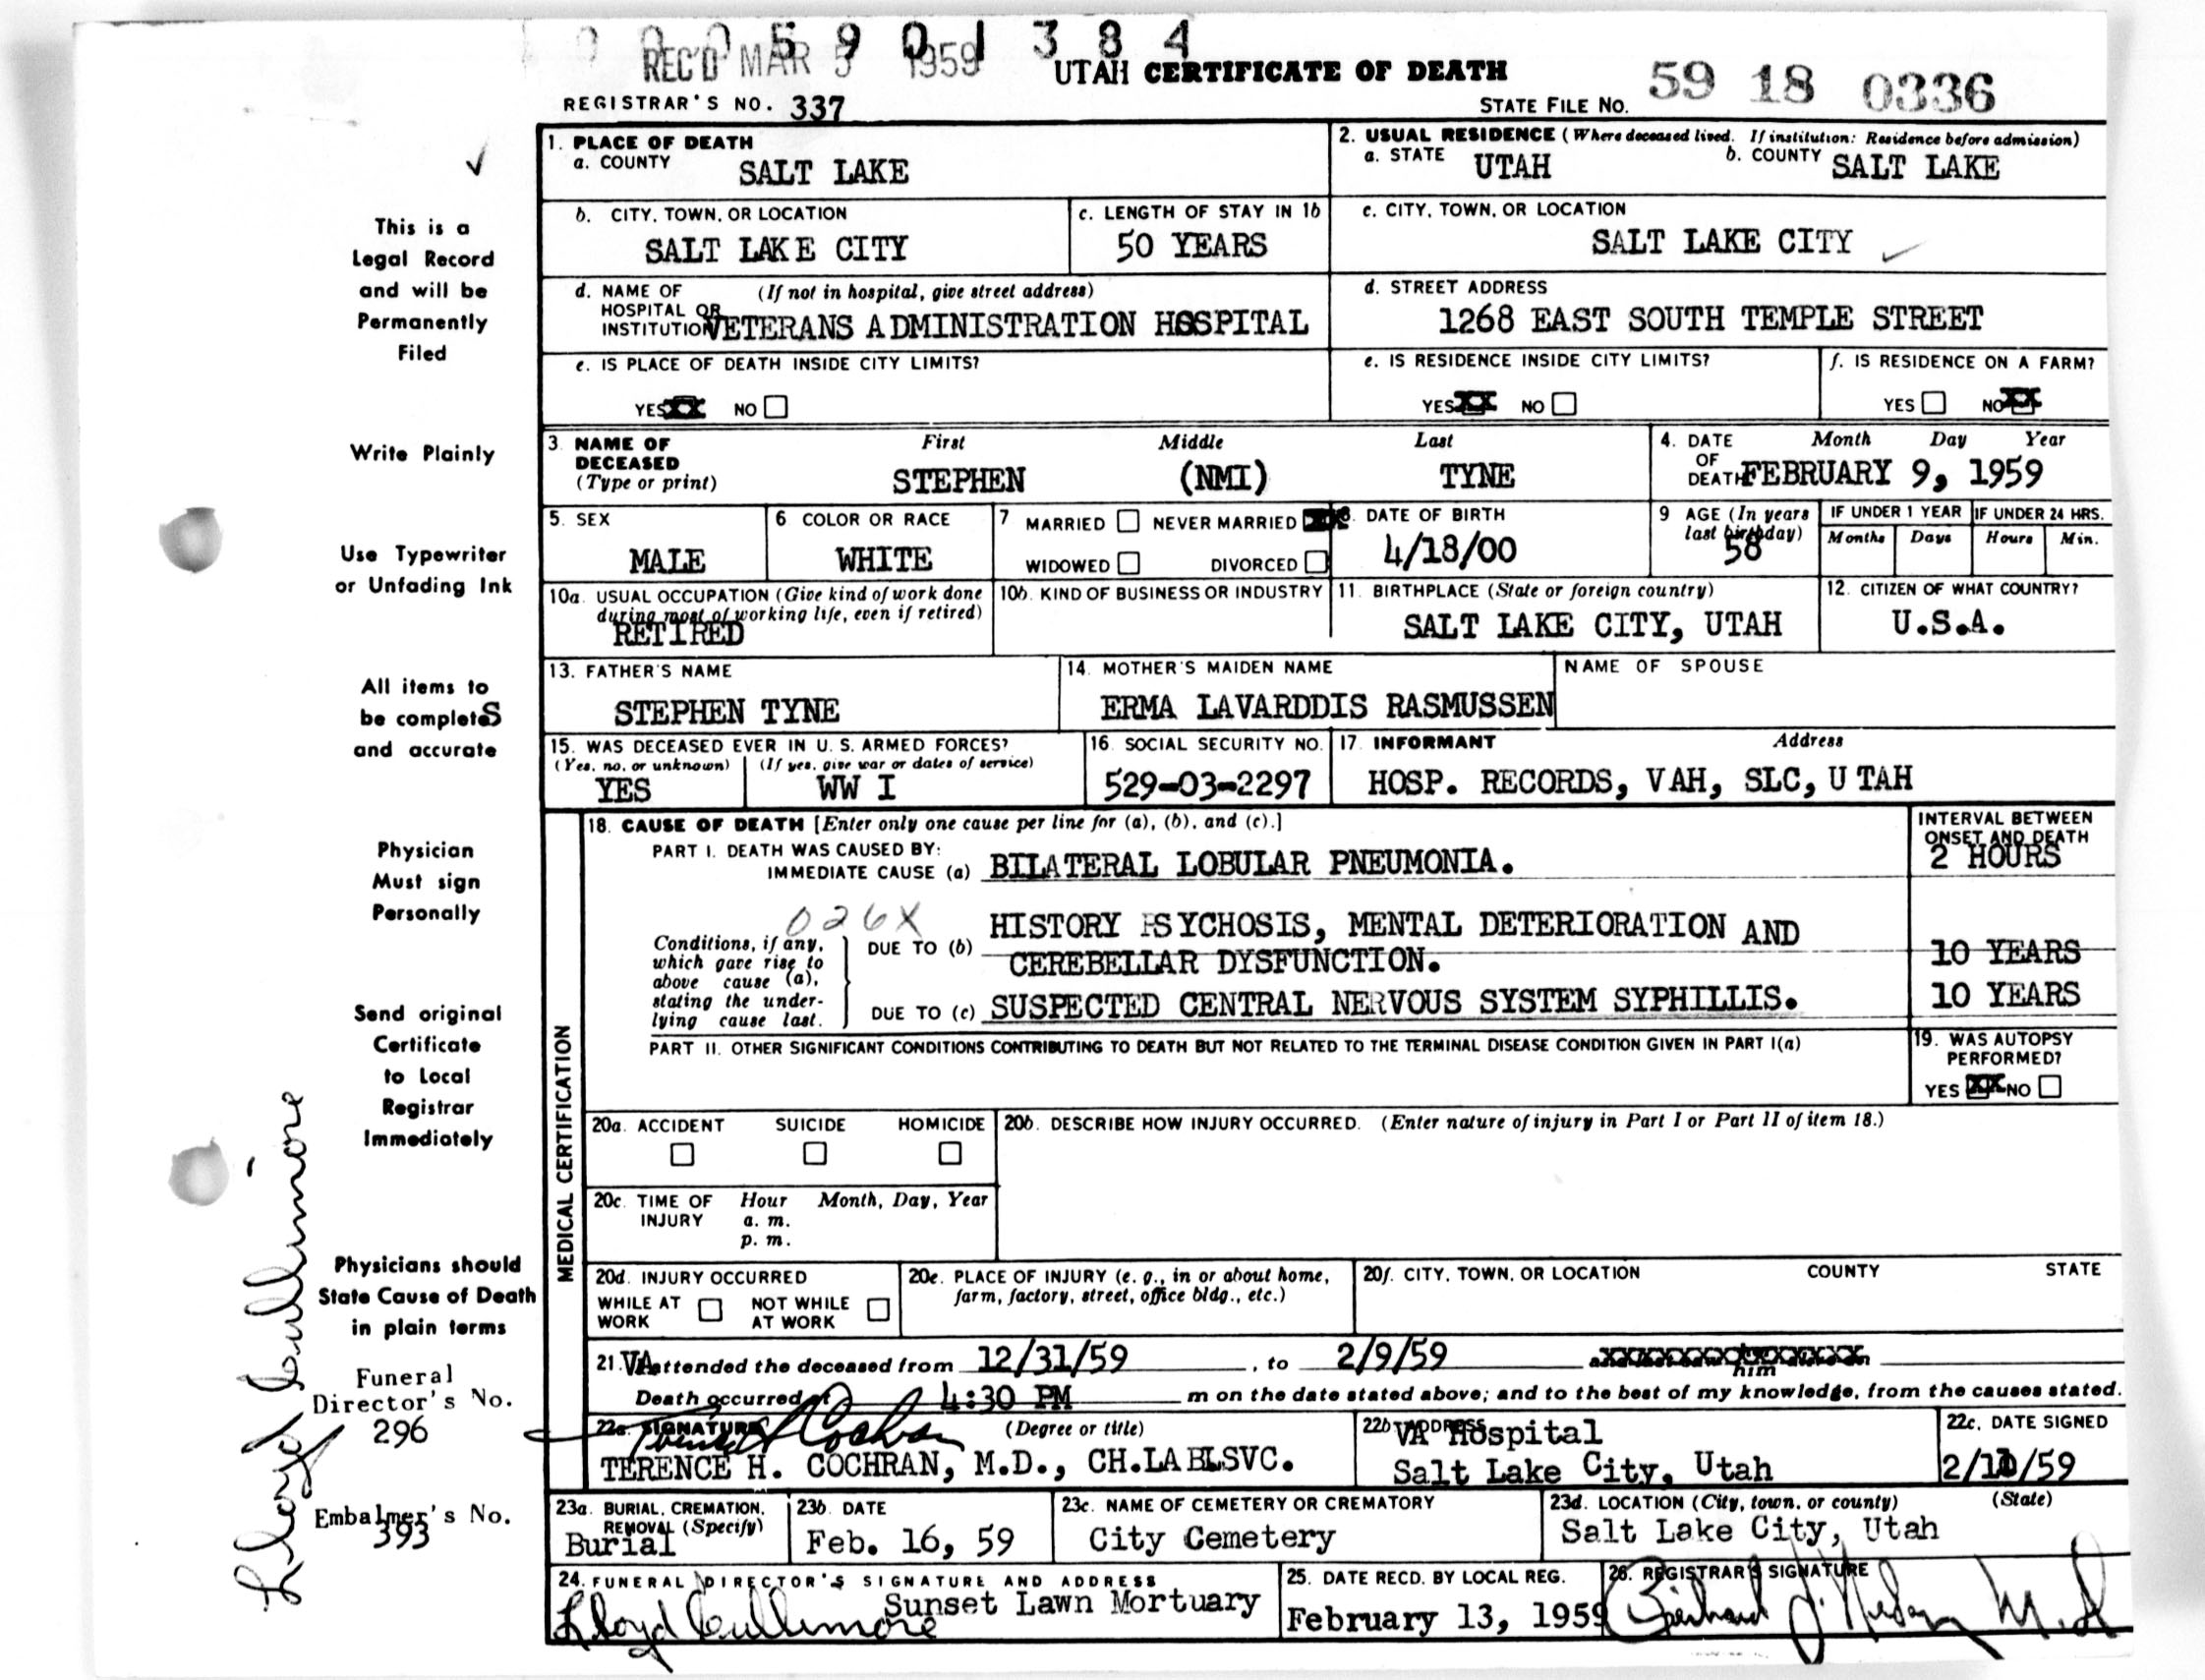 0 0 0 5 9 0 1 3 8 4
REC'D MAR 5 1959
UTAH CERTIFICATE OF DEATH
59 18 0336
REGISTRAR'S NO. 337
STATE FILE NO.
1. PLACE OF DEATH
a. COUNTY SALT LAKE
2. USUAL RESIDENCE (Where deceased lived. If institution: Residence before admission)
a. STATE UTAH b. COUNTY SALT LAKE
b. CITY, TOWN, OR LOCATION
SALT LAKE CITY
c. LENGTH OF STAY IN 1b
50 YEARS
c. CITY, TOWN, OR LOCATION
SALT LAKE CITY
d. NAME OF (If not in hospital, give street address)
HOSPITAL OR
INSTITUTION VETERANS ADMINISTRATION HOSPITAL
d. STREET ADDRESS
1268 EAST SOUTH TEMPLE STREET
e. IS PLACE OF DEATH INSIDE CITY LIMITS?
YES XX NO
e. IS RESIDENCE INSIDE CITY LIMITS?
YES XX NO
f. IS RESIDENCE ON A FARM?
YES NO XX
3. NAME OF DECEASED (Type or print)
First Middle Last
STEPHEN (NMI) TYNE
4. DATE OF DEATH Month Day Year
FEBRUARY 9, 1959
5. SEX
MALE
6 COLOR OR RACE
WHITE
7 MARRIED NEVER MARRIED XX
WIDOWED DIVORCED
8. DATE OF BIRTH
4/18/00
9 AGE (In years last birthday)
58
IF UNDER 1 YEAR IF UNDER 24 HRS.
Months Days Hours Min.
10a. USUAL OCCUPATION (Give kind of work done
during most of working life, even if retired)
RETIRED
10b. KIND OF BUSINESS OR INDUSTRY
11. BIRTHPLACE (State or foreign country)
SALT LAKE CITY, UTAH
12. CITIZEN OF WHAT COUNTRY?
U.S.A.
13. FATHER'S NAME
STEPHEN TYNE
14. MOTHER'S MAIDEN NAME
ERMA LAVARDDIS RASMUSSEN
NAME OF SPOUSE
15. WAS DECEASED EVER IN U. S. ARMED FORCES?
(Yes, no, or unknown) (If yes, give war or dates of service)
YES WW I
16 SOCIAL SECURITY NO.
529-03-2297
17. INFORMANT Address
HOSP. RECORDS, VAH, SLC, U TAH
MEDICAL CERTIFICATION
18. CAUSE OF DEATH [Enter only one cause per line for (a), (b), and (c).]
PART I. DEATH WAS CAUSED BY:
IMMEDIATE CAUSE (a) BILATERAL LOBULAR PNEUMONIA.
INTERVAL BETWEEN
ONSET AND DEATH
2 HOURS
026X
Conditions, if any,
which gave rise to
above cause (a),
stating the under-
lying cause last.
DUE TO (b) HISTORY PSYCHOSIS, MENTAL DETERIORATION AND
CEREBELLAR DYSFUNCTION.
10 YEARS
DUE TO (c) SUSPECTED CENTRAL NERVOUS SYSTEM SYPHILLIS.
10 YEARS
PART II. OTHER SIGNIFICANT CONDITIONS CONTRIBUTING TO DEATH BUT NOT RELATED TO THE TERMINAL DISEASE CONDITION GIVEN IN PART I(a)
19. WAS AUTOPSY
PERFORMED?
YES XX NO
20a. ACCIDENT SUICIDE HOMICIDE
20b. DESCRIBE HOW INJURY OCCURRED. (Enter nature of injury in Part I or Part II of item 18.)
20c. TIME OF INJURY Hour Month, Day, Year
a. m.
p. m.
20d. INJURY OCCURRED
WHILE AT WORK NOT WHILE AT WORK
20e. PLACE OF INJURY (e. g., in or about home,
farm, factory, street, office bldg., etc.)
20f. CITY, TOWN, OR LOCATION COUNTY STATE
21. VA attended the deceased from 12/31/59, to 2/9/59
him
Death occurred at 4:30 PM m on the date stated above; and to the best of my knowledge, from the causes stated.
22a. SIGNATURE (Degree or title)
Terence H Cochran
TERENCE H. COCHRAN, M.D., CH.LAB.SVC.
22b ADDRESS
VA Hospital
Salt Lake City, Utah
22c. DATE SIGNED
2/11/59
23a. BURIAL, CREMATION,
REMOVAL (Specify)
Burial
23b. DATE
Feb. 16, 59
23c. NAME OF CEMETERY OR CREMATORY
City Cemetery
23d. LOCATION (City, town, or county) (State)
Salt Lake City, Utah
24. FUNERAL DIRECTOR'S SIGNATURE AND ADDRESS
Sunset Lawn Mortuary
Lloyd Cullimore
25. DATE RECD. BY LOCAL REG.
February 13, 1959
26. REGISTRAR'S SIGNATURE
This is a
Legal Record
and will be
Permanently
Filed
Write Plainly
Use Typewriter
or Unfading Ink
All items to
be completeS
and accurate
Physician
Must sign
Personally
Send original
Certificate
to Local
Registrar
Immediately
Physicians should
State Cause of Death
in plain terms
Funeral
Director's No.
296
Embalmer's No.
393
Lloyd Cullimore